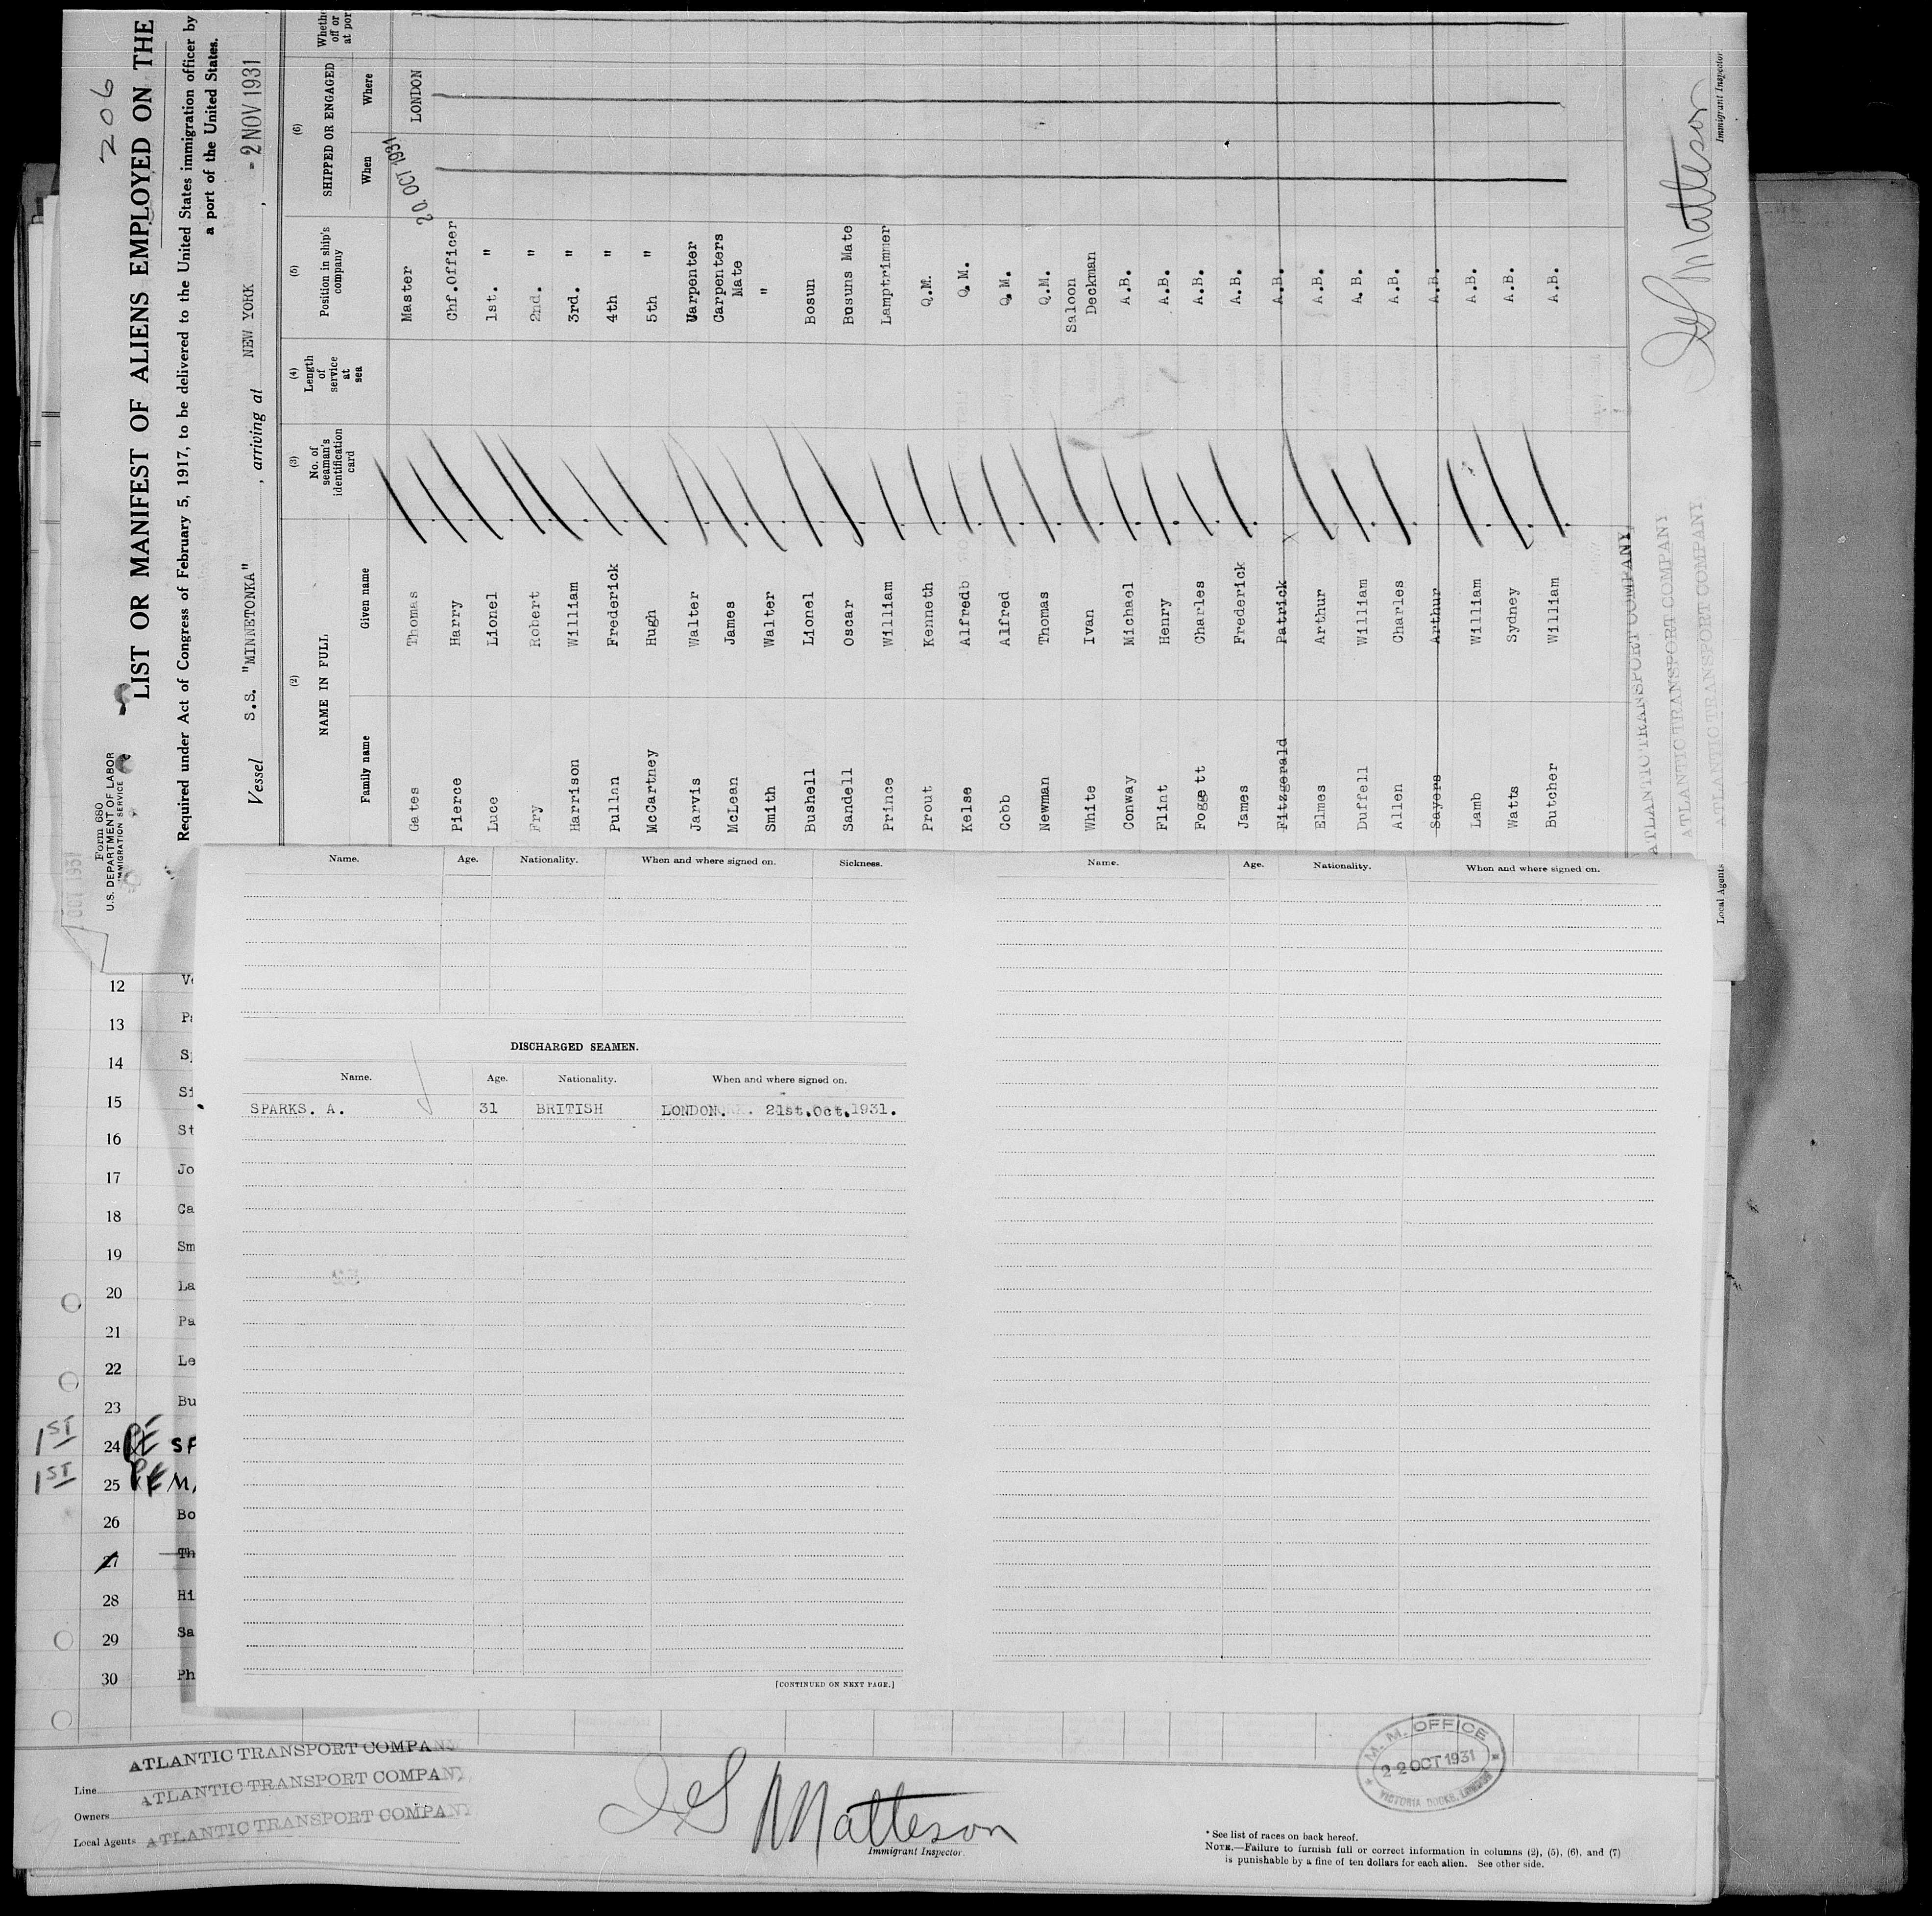 206
Form 680
U.S. DEPARTMENT OF LABOR
IMMIGRATION SERVICE
LIST OR MANIFEST OF ALIENS EMPLOYED ON THE
Required under Act of Congress of February 5, 1917, to be delivered to the United States immigration officer by
a port of the United States.
Vessel S.S. "MINNETONKA", arriving at NEW YORK, - 2 NOV 1931
(2) (3) (4) (5) (6)
NAME IN FULL No. of seaman's identification card Length of service at sea Position in ship's company SHIPPED OR ENGAGED
Family name Given name When Where
Gates Thomas Master 20. OCT 1931 LONDON
Pierce Harry Chf.Officer
Luce Lionel 1st. "
Fry Robert 2nd. "
Harrison William 3rd. "
Pullnn Frederick 4th "
McCartney Hugh 5th "
Jarvis Walter Carpenter
McLean James Carpenters Mate
Smith Walter "
Bushell Lionel Bosun
Sandell Oscar Busuns Mate
Prince William Lamptrimmer
Prout Kenneth Q.M.
Kelse Alfredb Q.M.
Cobb Alfred Q.M.
Newman Thomas Q.M.
White Ivan Saloon Deckman
Conway Michael A.B.
Flnt Henry A.B.
Foggett Charles A.B.
James Frederick A.B.
Fitzgerald Patrick A.B.
Elmes Arthur A.B.
Duffell William A.B.
Allen Charles A.B.
Sayers Arthur A.B.
Lamb William A.B.
Watts Sydney A.B.
Butcher William A.B.
ATLANTIC TRANSPORT COMPANY
ATLANTIC TRANSPORT COMPANY
ATLANTIC TRANSPORT COMPANY
Local Agents
Matteson
Immigrant Inspector.
Name. Age. Nationality. When and where signed on. Sickness.
DISCHARGED SEAMEN.
Name. Age. Nationality. When and where signed on.
SPARKS. A. 31 BRITISH LONDON. 21st.Oct.1931.
[CONTINUED ON NEXT PAGE.]
Name. Age. Nationality. When and where signed on.
12 Ve
13 Pa
14 Sp
15 Si
16 St
17 Jo
18 Ca
19 Sm
20 La
21 Pa
22 Le
23 Bu
1ST 24 PE SP
1ST 25 PE MA
26 Bo
27 Th
28 Hi
29 Sa
30 Ph
Line ATLANTIC TRANSPORT COMPANY
Owners ATLANTIC TRANSPORT COMPANY
Local Agents ATLANTIC TRANSPORT COMPANY
Matteson
Immigrant Inspector.
M. M. OFFICE
22 OCT 1931
VICTORIA DOCKS, LONDON
* See list of races on back hereof.
NOTE.—Failure to furnish full or correct information in columns (2), (5), (6), and (7)
is punishable by a fine of ten dollars for each alien. See other side.